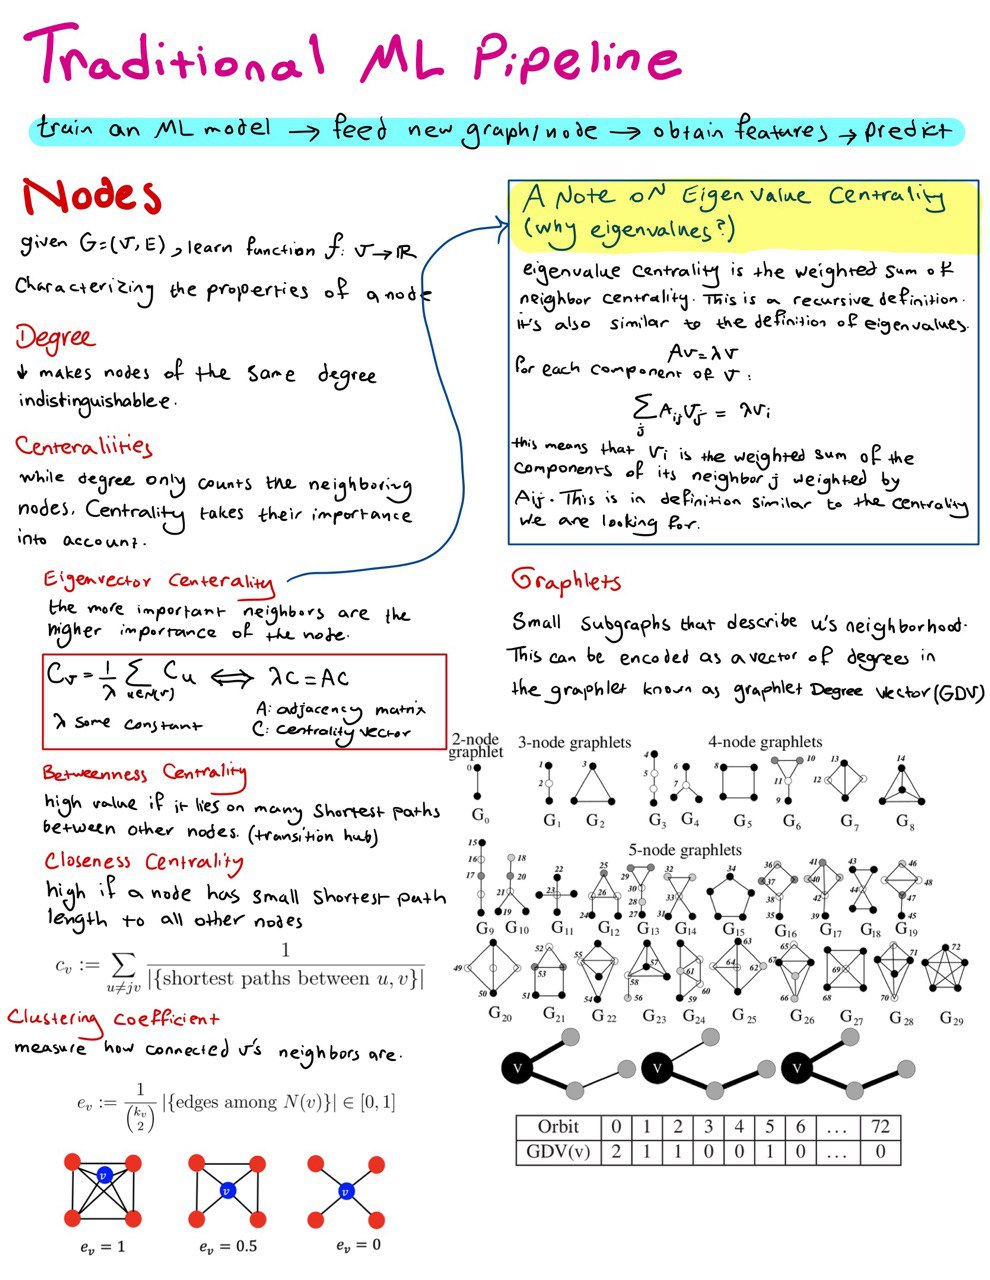 Traditional ML Pipeline
train an ML model → feed new graph/node → obtain features → predict
Nodes
given G=(V,E), learn function f: V→ℝ
Characterizing the properties of a node
Degree
↓ makes nodes of the same degree
indistinguishablee.
Centeraliities
while degree only counts the neighboring
nodes, Centrality takes their importance
into account.
Eigenvector Centerality
the more important neighbors are the
higher importance of the node.
C_v = 1/λ ∑_{u∈N(v)} C_u ⟺ λC = AC
λ some constant
A: adjacency matrix
C: centrality vector
Betweenness Centrality
high value if it lies on many shortest paths
between other nodes. (transition hub)
Closeness Centrality
high if a node has small shortest path
length to all other nodes
c_v := ∑_{u≠jv} 1 / |{shortest paths between u, v}|
Clustering coefficient
measure how connected v's neighbors are.
e_v := 1 / (k_v 2) |{edges among N(v)}| ∈ [0, 1]
v
v
v
e_v = 1
e_v = 0.5
e_v = 0
A Note on Eigen Value Centrality
(why eigenvalues?)
eigenvalue centrality is the weighted sum of
neighbor centrality. This is a recursive definition.
it's also similar to the definition of eigenvalues.
Av = λv
for each component of v:
∑_j A_ij v_j = λv_i
this means that v_i is the weighted sum of the
components of its neighbor j weighted by
A_ij. This is in definition similar to the centrality
we are looking for.
Graphlets
Small subgraphs that describe u's neighborhood.
This can be encoded as a vector of degrees in
the graphlet known as graphlet Degree vector (GDV)
2-node
graphlet
3-node graphlets
4-node graphlets
0 1 2 3 4 5 6 7 8 9 10 11 12 13 14
G0 G1 G2 G3 G4 G5 G6 G7 G8
5-node graphlets
15 16 17 18 19 20 21 22 23 24 25 26 27 28 29 30 31 32 33 34 35 36 37 38 39 40 41 42 43 44 45 46 47 48
G9 G10 G11 G12 G13 G14 G15 G16 G17 G18 G19
49 50 51 52 53 54 55 56 57 58 59 60 61 62 63 64 65 66 67 68 69 70 71 72
G20 G21 G22 G23 G24 G25 G26 G27 G28 G29
V V V
Orbit 0 1 2 3 4 5 6 … 72
GDV(v) 2 1 1 0 0 1 0 … 0